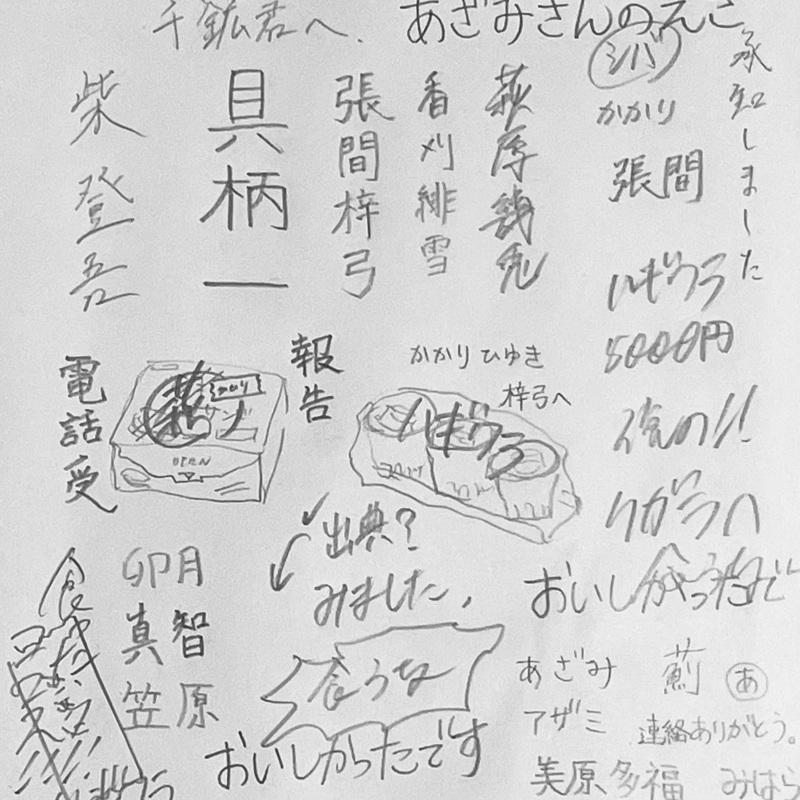 千鉱君へ.
あざみさんのえこ
シバ
承知しました
かかり
張間
柴登吾
具柄一
張間梓弓
香刈緋雪
萩原幾兎
ハギワラ
5000円
電話受
報告
かかり ひゆき
梓弓へ
かかり
OPEN
ハギワラ
出典?
みました,
おいしかったで
卯月
真智
笠原
食うな
おいしかったです
あざみ
薊
あ
アザミ
連絡ありがとう。
美原多福
みはら